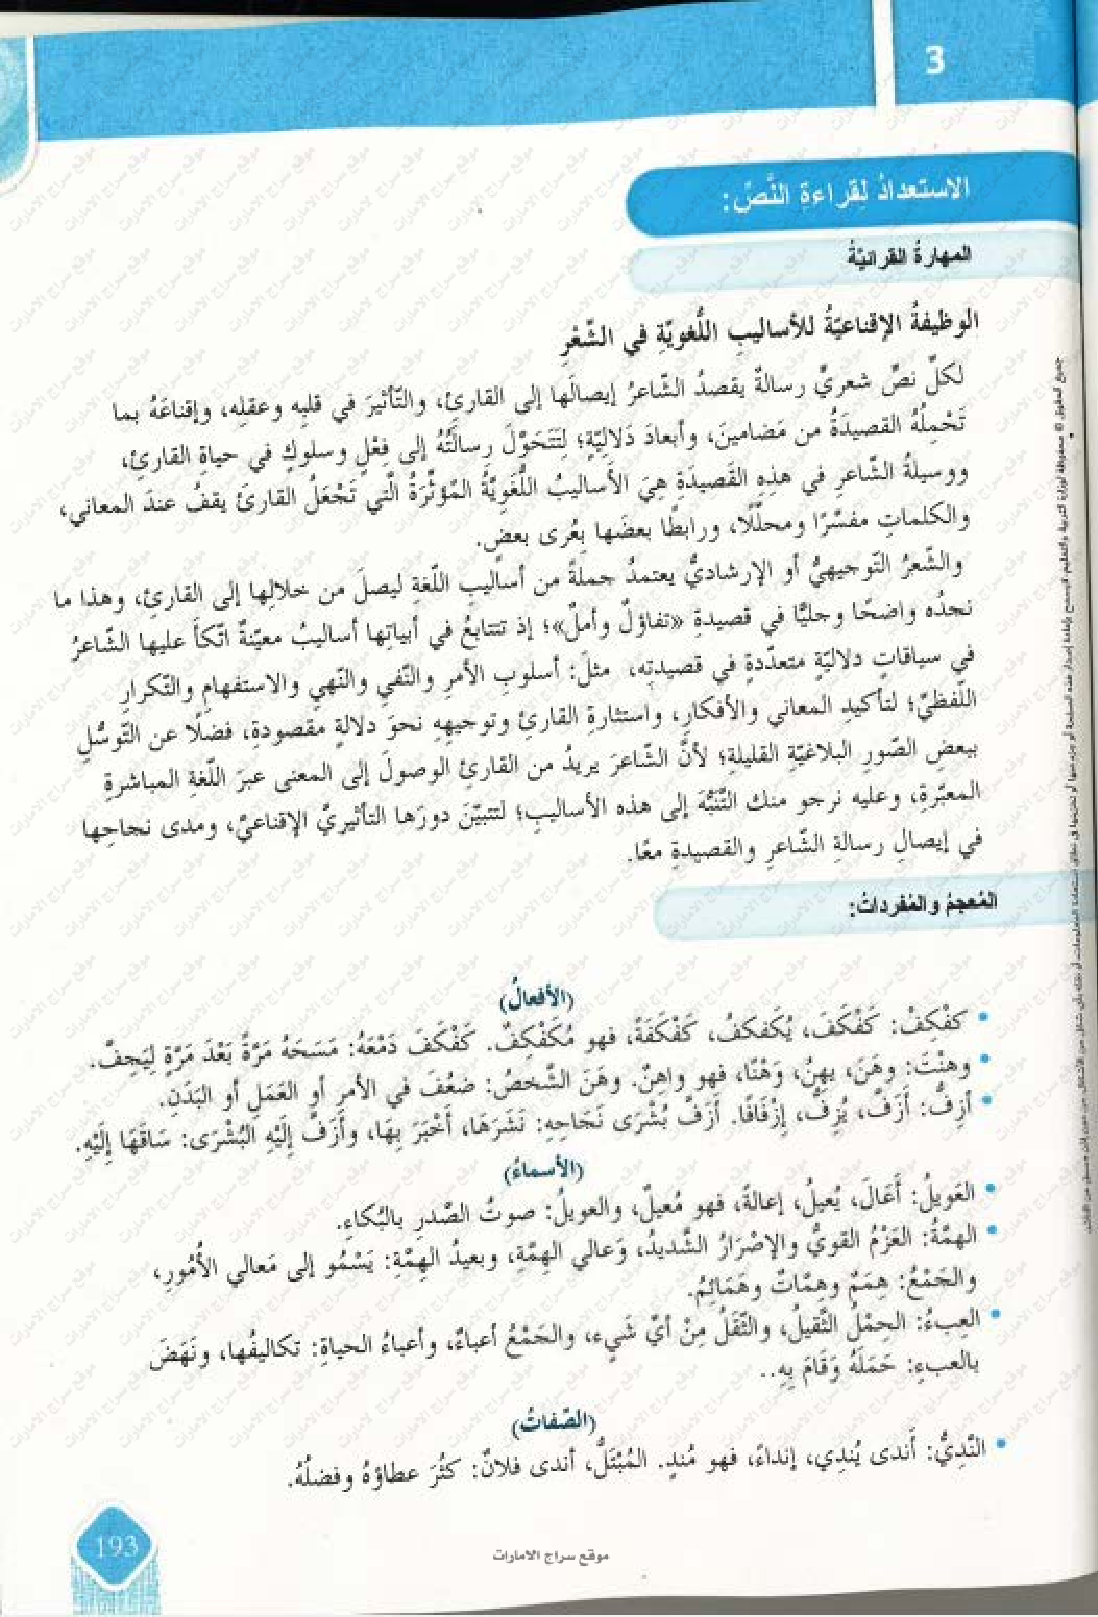 3
الاستعدادُ لِقراءةِ النَّصِّ:
المهارةُ القرائيّةُ
الوظيفةُ الإقناعيّةُ للأساليبِ اللُّغويّةِ في الشّعْرِ
لكلِّ نصٍّ شعريٍّ رسالةٌ يقصدُ الشّاعرُ إيصالَها إلى القارئِ، والتّأثيرَ في قلبِه وعقلِه، وإقناعَهُ بما
تَحْمِلُهُ القصيدَةُ من مَضامينَ، وأبعادَ دَلاليّةٍ؛ لِتَتَحَوَّلَ رسالَتُهُ إلى فِعْلٍ وسلوكٍ في حياةِ القارئِ،
ووسيلةُ الشّاعرِ في هذِهِ القَصيدَةِ هِيَ الأَساليبُ اللُّغَوِيَّةُ المُؤثِّرَةُ الَّتي تَجْعَلُ القارئَ يقفُ عندَ المعاني،
والكلماتِ مفسّرًا ومحلّلًا، ورابطًا بعضَها بِعُرى بعضٍ.
والشّعرُ التّوجيهيُّ أو الإرشاديُّ يعتمدُ جملةً من أساليبِ اللّغةِ ليصلَ من خلالِها إلى القارئِ، وهذا ما
نجدُه واضحًا وجليًّا في قصيدةِ «تفاؤلٌ وأملٌ»؛ إذ تتتابعُ في أبياتِها أساليبُ معيّنةٌ اتّكأَ عليها الشّاعرُ
في سياقاتٍ دلاليّةٍ متعدّدةٍ في قصيدتِه، مثلَ: أسلوبِ الأمرِ والنّفيِ والنّهيِ والاستفهامِ والتّكرارِ
اللّفظيِّ؛ لتأكيدِ المعاني والأفكارِ، واستثارةِ القارئِ وتوجيهِهِ نحوَ دلالةٍ مقصودةٍ، فضلًا عن التّوسُّلِ
ببعضِ الصّورِ البلاغيّةِ القليلةِ؛ لأنَّ الشّاعرَ يريدُ من القارئِ الوصولَ إلى المعنى عبرَ اللّغةِ المباشرةِ
المعبّرةِ، وعليه نرجو منك التَّنَبُّهَ إلى هذه الأساليبِ؛ لتتبيّنَ دورَها التأثيريَّ الإقناعيَّ، ومدى نجاحِها
في إيصالِ رسالةِ الشّاعرِ والقصيدةِ معًا.
المُعجمُ والمُفرداتُ:
(الأفعالُ)
• كفْكِفْ: كَفْكَفَ، يُكَفكفُ، كَفْكَفَةً، فهو مُكَفْكِفٌ. كَفْكَفَ دَمْعَهُ: مَسَحَهُ مَرَّةً بَعْدَ مَرَّةٍ لِيَجِفَّ.
• وهنْتَ: وهَنَ، يهِنُ، وَهْنًا، فهو واهِنٌ. وهَنَ الشّخصُ: ضعُفَ في الأمرِ أو العَمَلِ أو البَدَنِ.
• أزِفُّ: أَزَفَّ، يُزِفُّ، إِزْفَافًا. أَزَفَّ بُشْرَى نَجَاحِهِ: نَشَرَهَا، أَخْبَرَ بِهَا، وأَزَفَّ إِلَيْهِ البُشْرَى: سَاقَهَا إِلَيْهِ.
(الأسماءُ)
• العَويلُ: أَعَالَ، يُعيلُ، إعالةً، فهو مُعيلٌ، والعويلُ: صوتُ الصّدرِ بالبُكاءِ.
• الهمَّةُ: العَزْمُ القويُّ والإصْرَارُ الشَّديدُ، وَعالي الهِمَّةِ، وبعيدُ الهِمَّةِ: يَسْمُو إلى مَعالي الأُمُورِ،
والجَمْعُ: هِمَمٌ وهِمَّاتٌ وهَمَائِمُ.
• العِبءُ: الحِمْلُ الثَّقيلُ، والثّقَلُ مِنْ أيِّ شَيءٍ، والجَمْعُ أعباءٌ، وأعباءُ الحياةِ: تكاليفُها، ونَهَضَ
بالعبءِ: حَمَلَهُ وَقَامَ بِهِ..
(الصّفاتُ)
• النّدِيُّ: أَندى يُندِي، إنداءً، فهو مُندٍ. المُبْتَلُّ، أندى فلانٌ: كثُرَ عطاؤهُ وفضلُهُ.
193
موقع سراج الامارات